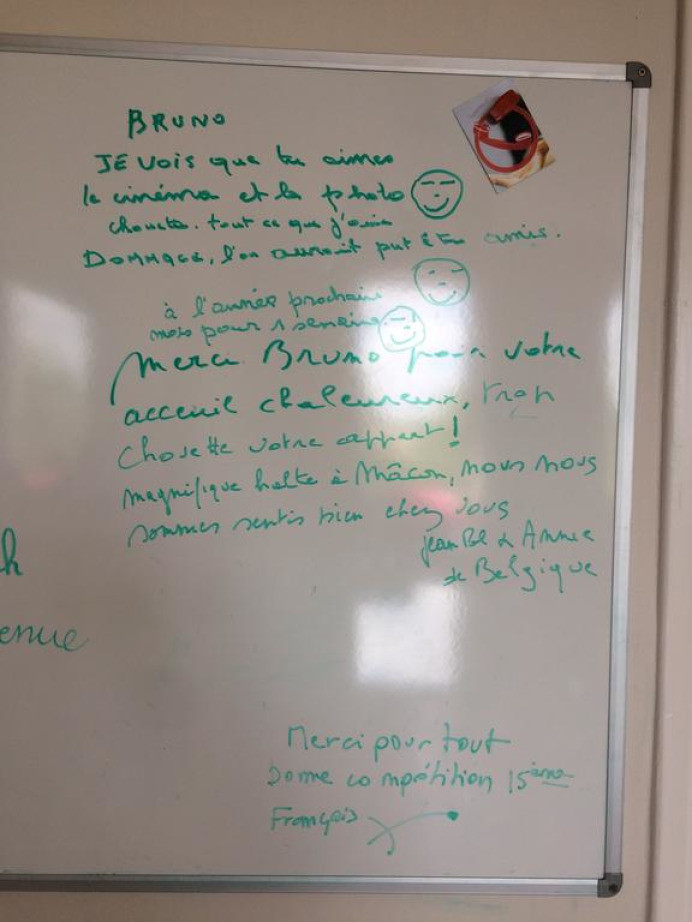 BRUNO
JE VOIS que tu aimes
le cinéma et la photo
chouette. tout ce que j'aime
DOMMAGE, l'on aurait put être amis.
à l'année prochaine
mais pour 1 semaine
Merci BRUNO pour votre
acceuil chaleureux, trop
chouette votre appart!
magnifique halte à Mâcon, nous nous
sommes sentis bien chez vous
& Annie
de Belgique
h
enue
Merci pour tout
Bonne compétition 15ème
François